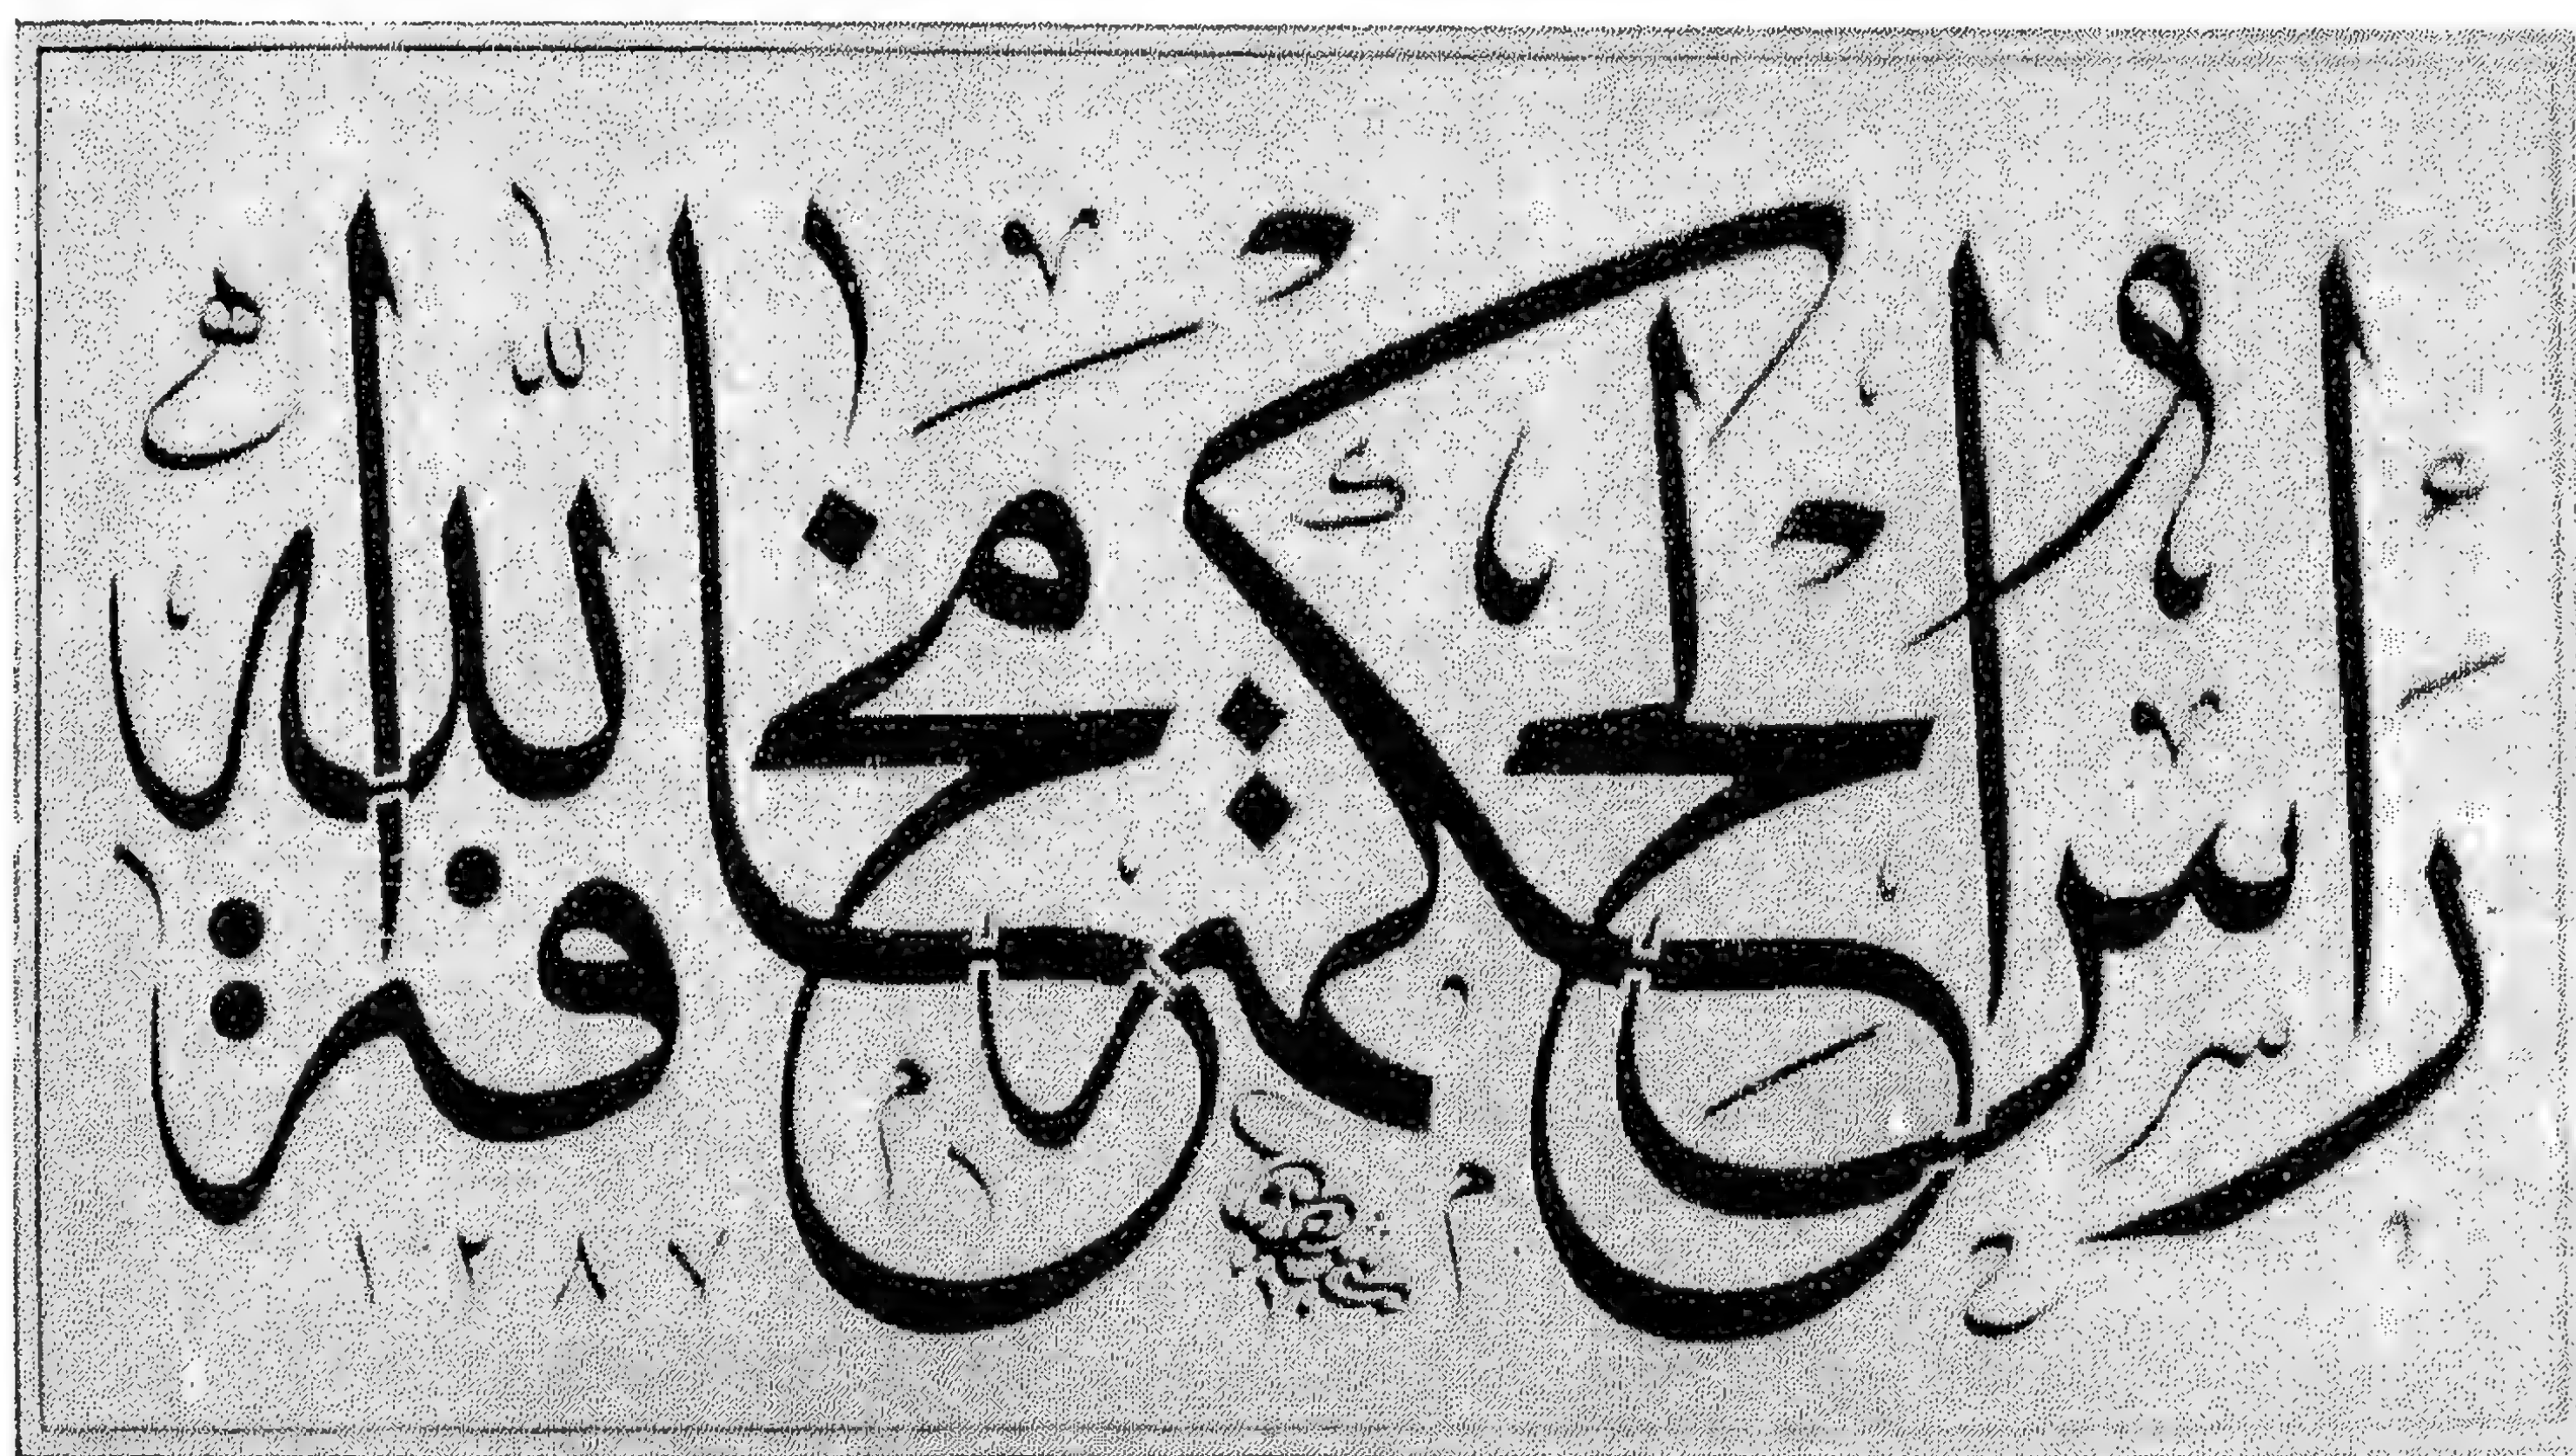 رأس الحكمة مخافة الله
١٢٨١